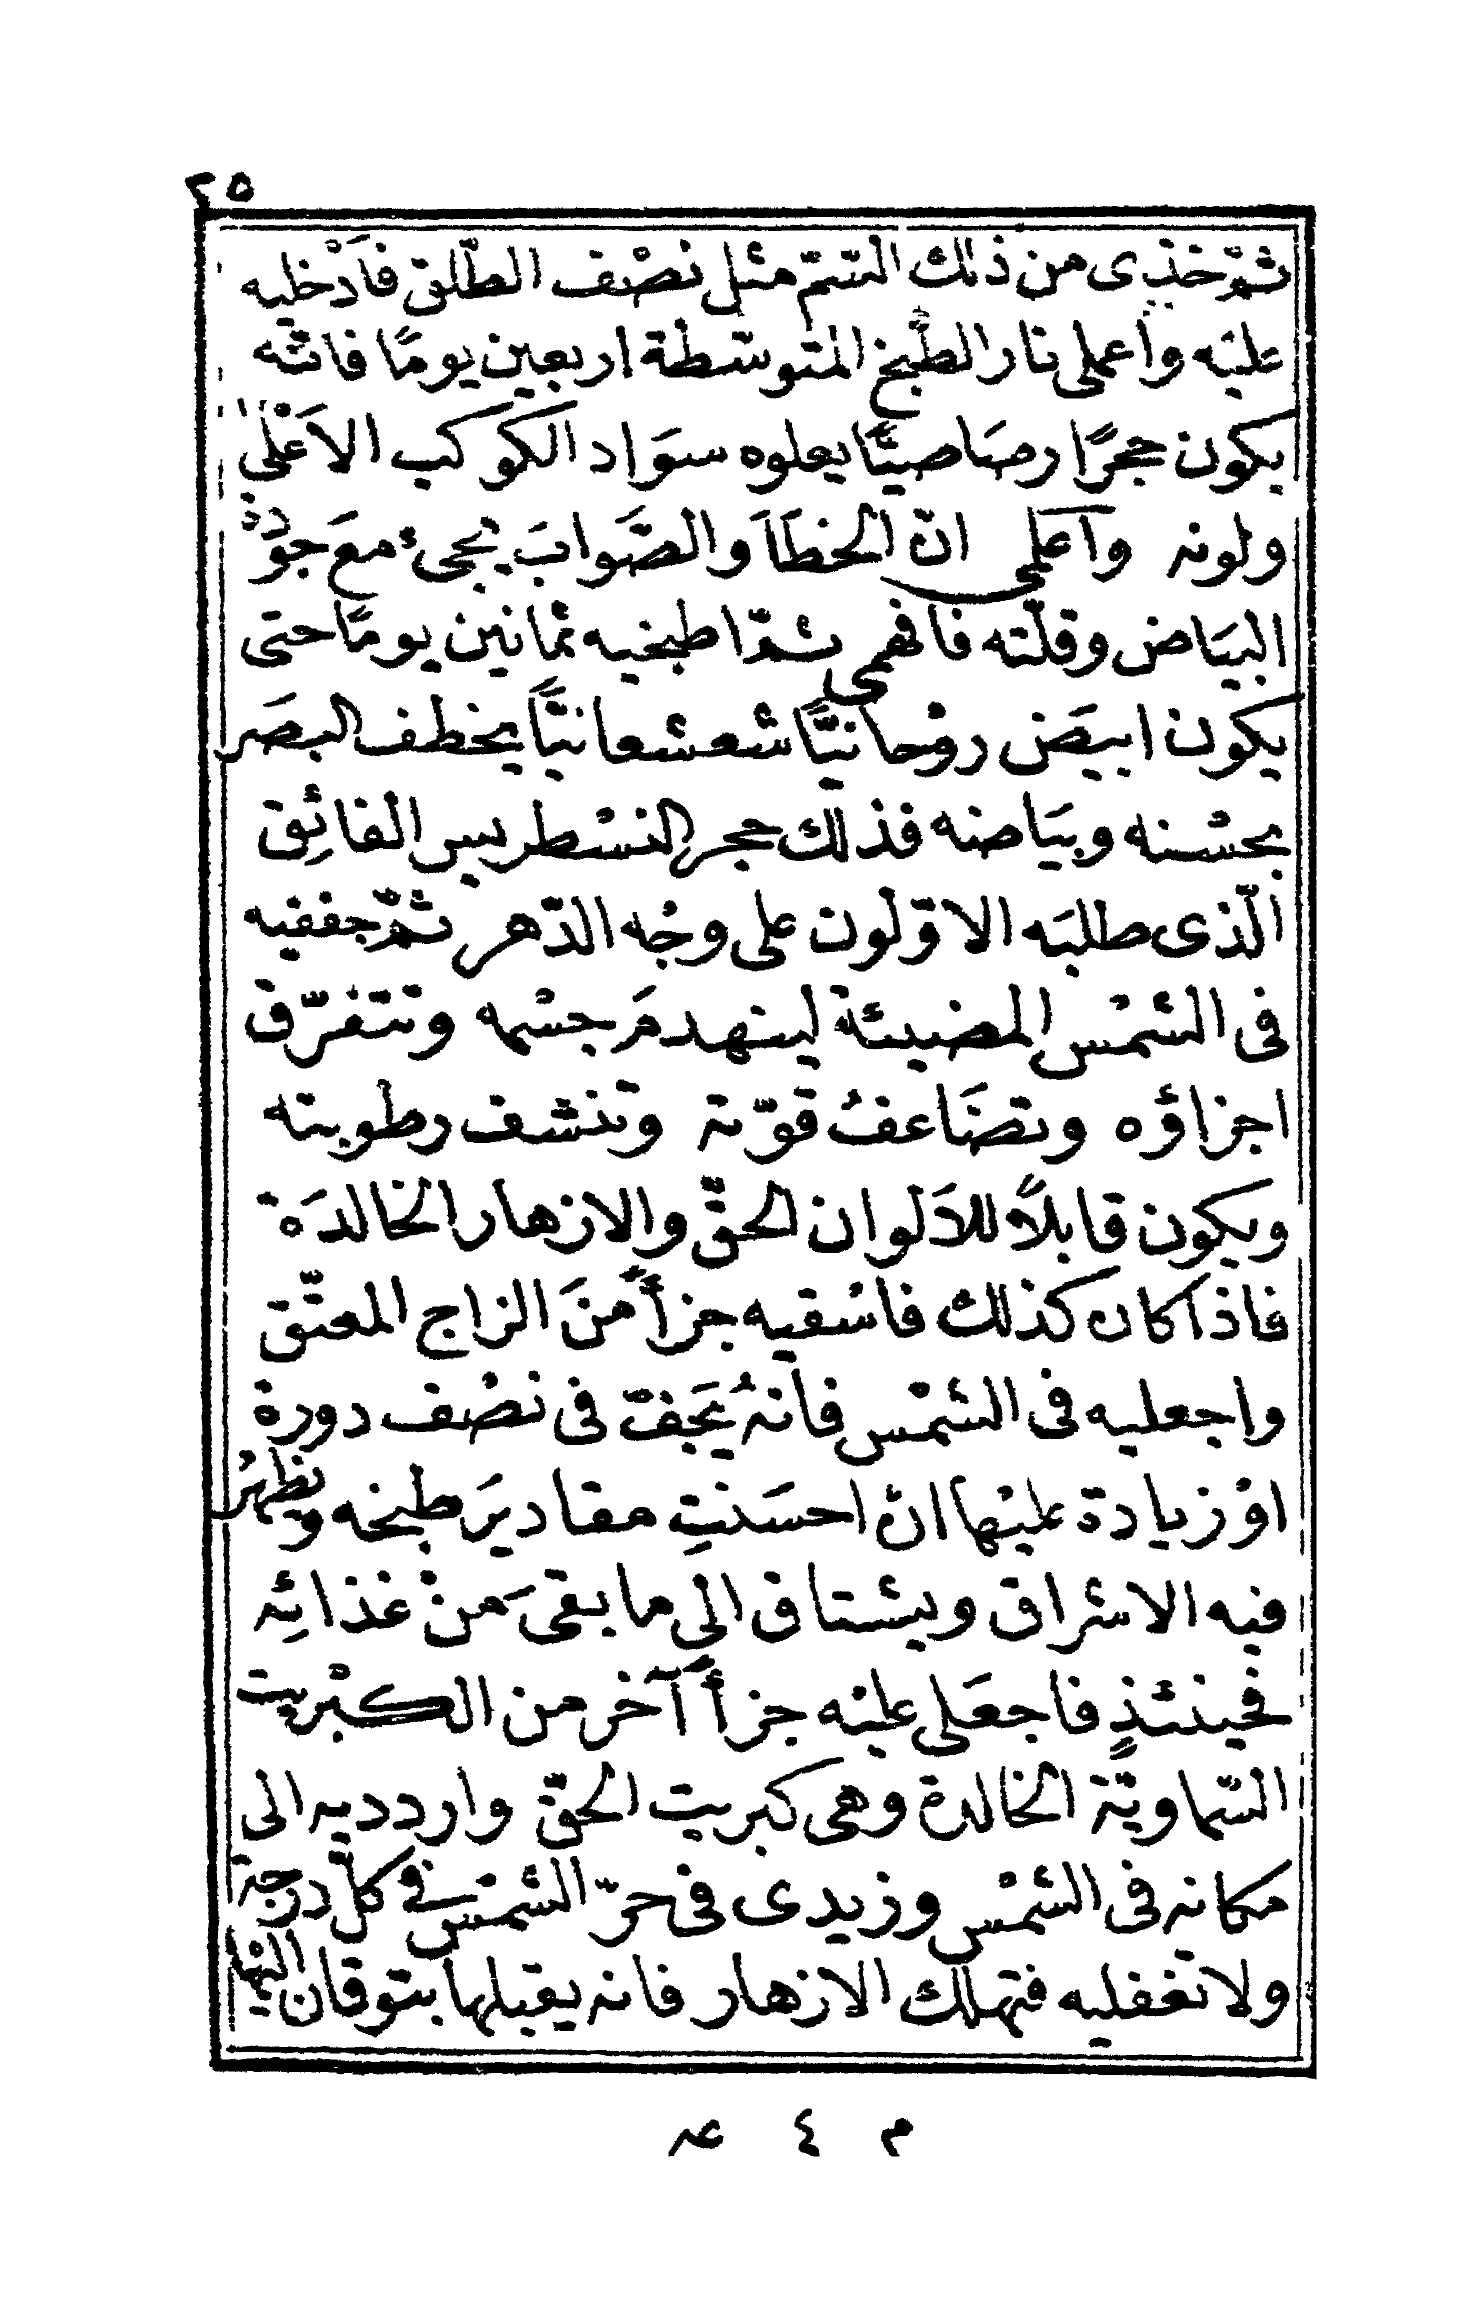 ٢٥
ثمّ خذى من ذلك السّمّ مثل نصْف الطّلق فاَدْخليه
عليْه واعملى نار الطّبخ المتوسّطة اربعين يومًا فانّه
يكون حجرًا رصَاصيًّا يعلوه سوَاد الكوكب الاَعْلى
ولونه واعلمى انّ الخطَاَ والصَّوابَ يجىء مع جوْدة
البيَاض وقلّته فافهمى ثمّ اطبخيه ثمانين يومًا حتى
يكون ابيَض روْحانيًّا شعشعانيًّا يخطف البصَر
بحسْنه وبيَاضه فذلك حجر النسْطريس الفائِق
الّذى طلبَه الاوّلون على وجْه الدّهر ثمّ جففيه
فى الشمْس المضيئة لينهدمَ جسْمه وتتفرّق
اجزاؤه وتضَاعفُ قوّته وتنشف رطوبته
ويكون قابلاً للاَلوان الحقّ والازهار الخالدَة
فاذا كان كذلك فاسْقيه جزأً منَ الزاج المعتّق
واجعليه فى الشمْس فانهُ يَجفّ فى نصْف دورة
اوْ زيادة عليْها انْ احسَنْتِ مقاديرَ طبْخه وتظهرُ
فيه الاشراق ويشتاق الى ما بقىَ منْ غذائِه
فحينئذٍ فاجعَلى عليْه جزأً آخر من الكبْريت
السّماويّة الخالدة وهى كبريت الحقّ وارددیه الى
مكانه فى الشمْس وزيدى فى حرّ الشمْس فى كلّ درجة
ولا تغفليه فتهلك الازهار فانه يقبلها بتوقان اليْها
م ٤ عہ